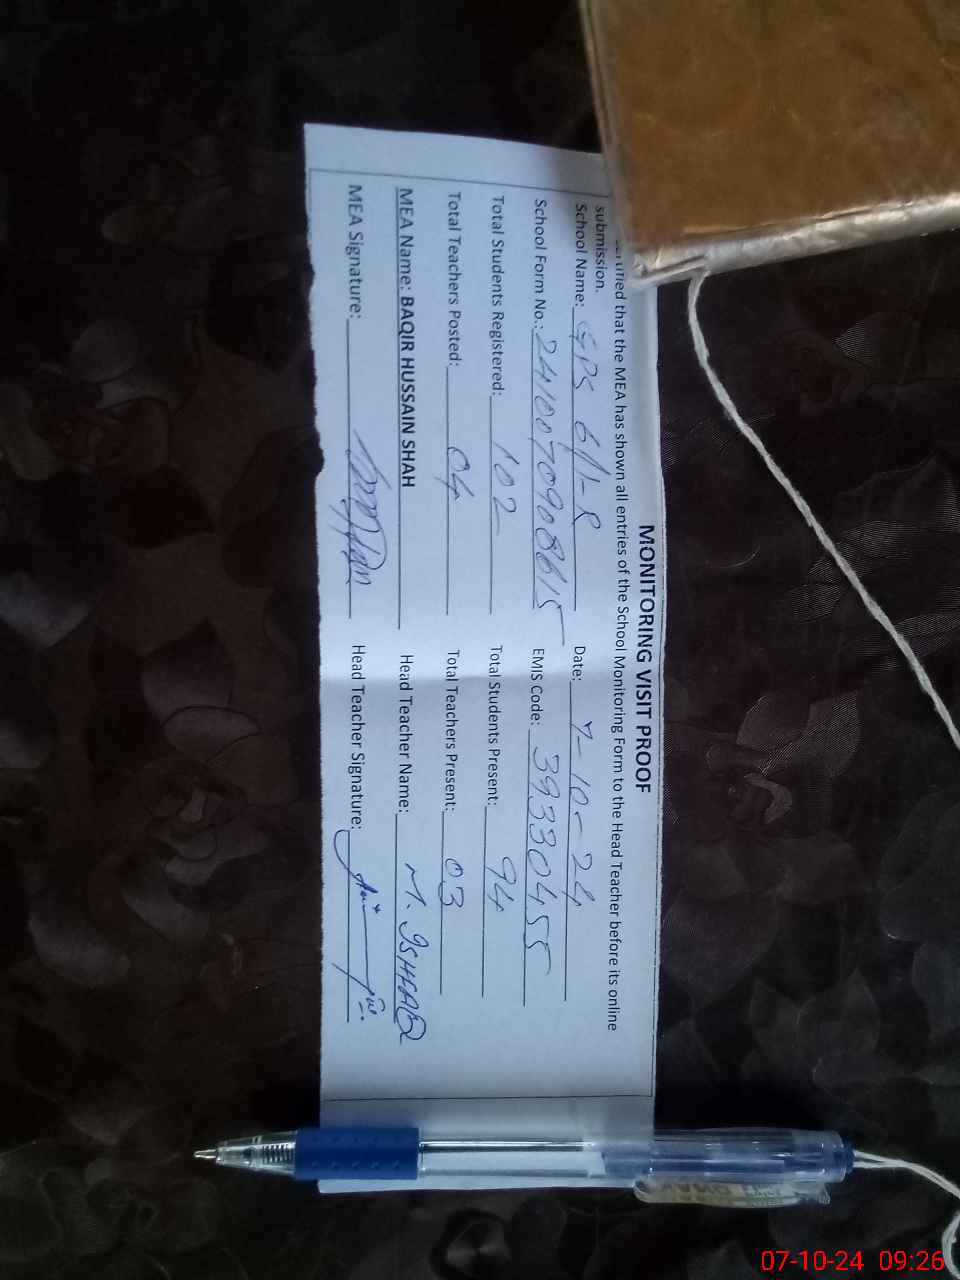 MONITORING VISIT PROOF
that the MEA has shown all entries of the School Monitoring Form to the Head Teacher before its online
submission.
School Name: GPS 61/-R Date: 7-10-24
School Form No.: 2410070908615 EMIS Code: 39330455
Total Students Registered: 102 Total Students Present: 94
Total Teachers Posted: 04 Total Teachers Present: 03
MEA Name: BAQIR HUSSAIN SHAH Head Teacher Name: M. ISHAAQ
MEA Signature: Head Teacher Signature:
07-10-24 09:26